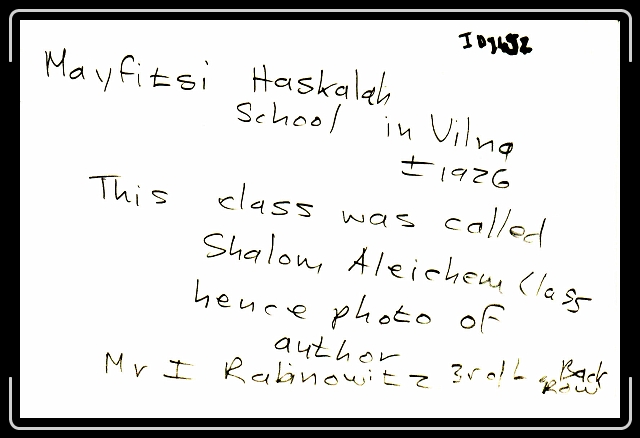 Mayfitsi Haskalah
School in Vilna
± 1926
This class was called
Shalom Aleichem Class
hence photo of
author
Mr I Rabinowitz 3rd L Back
Row